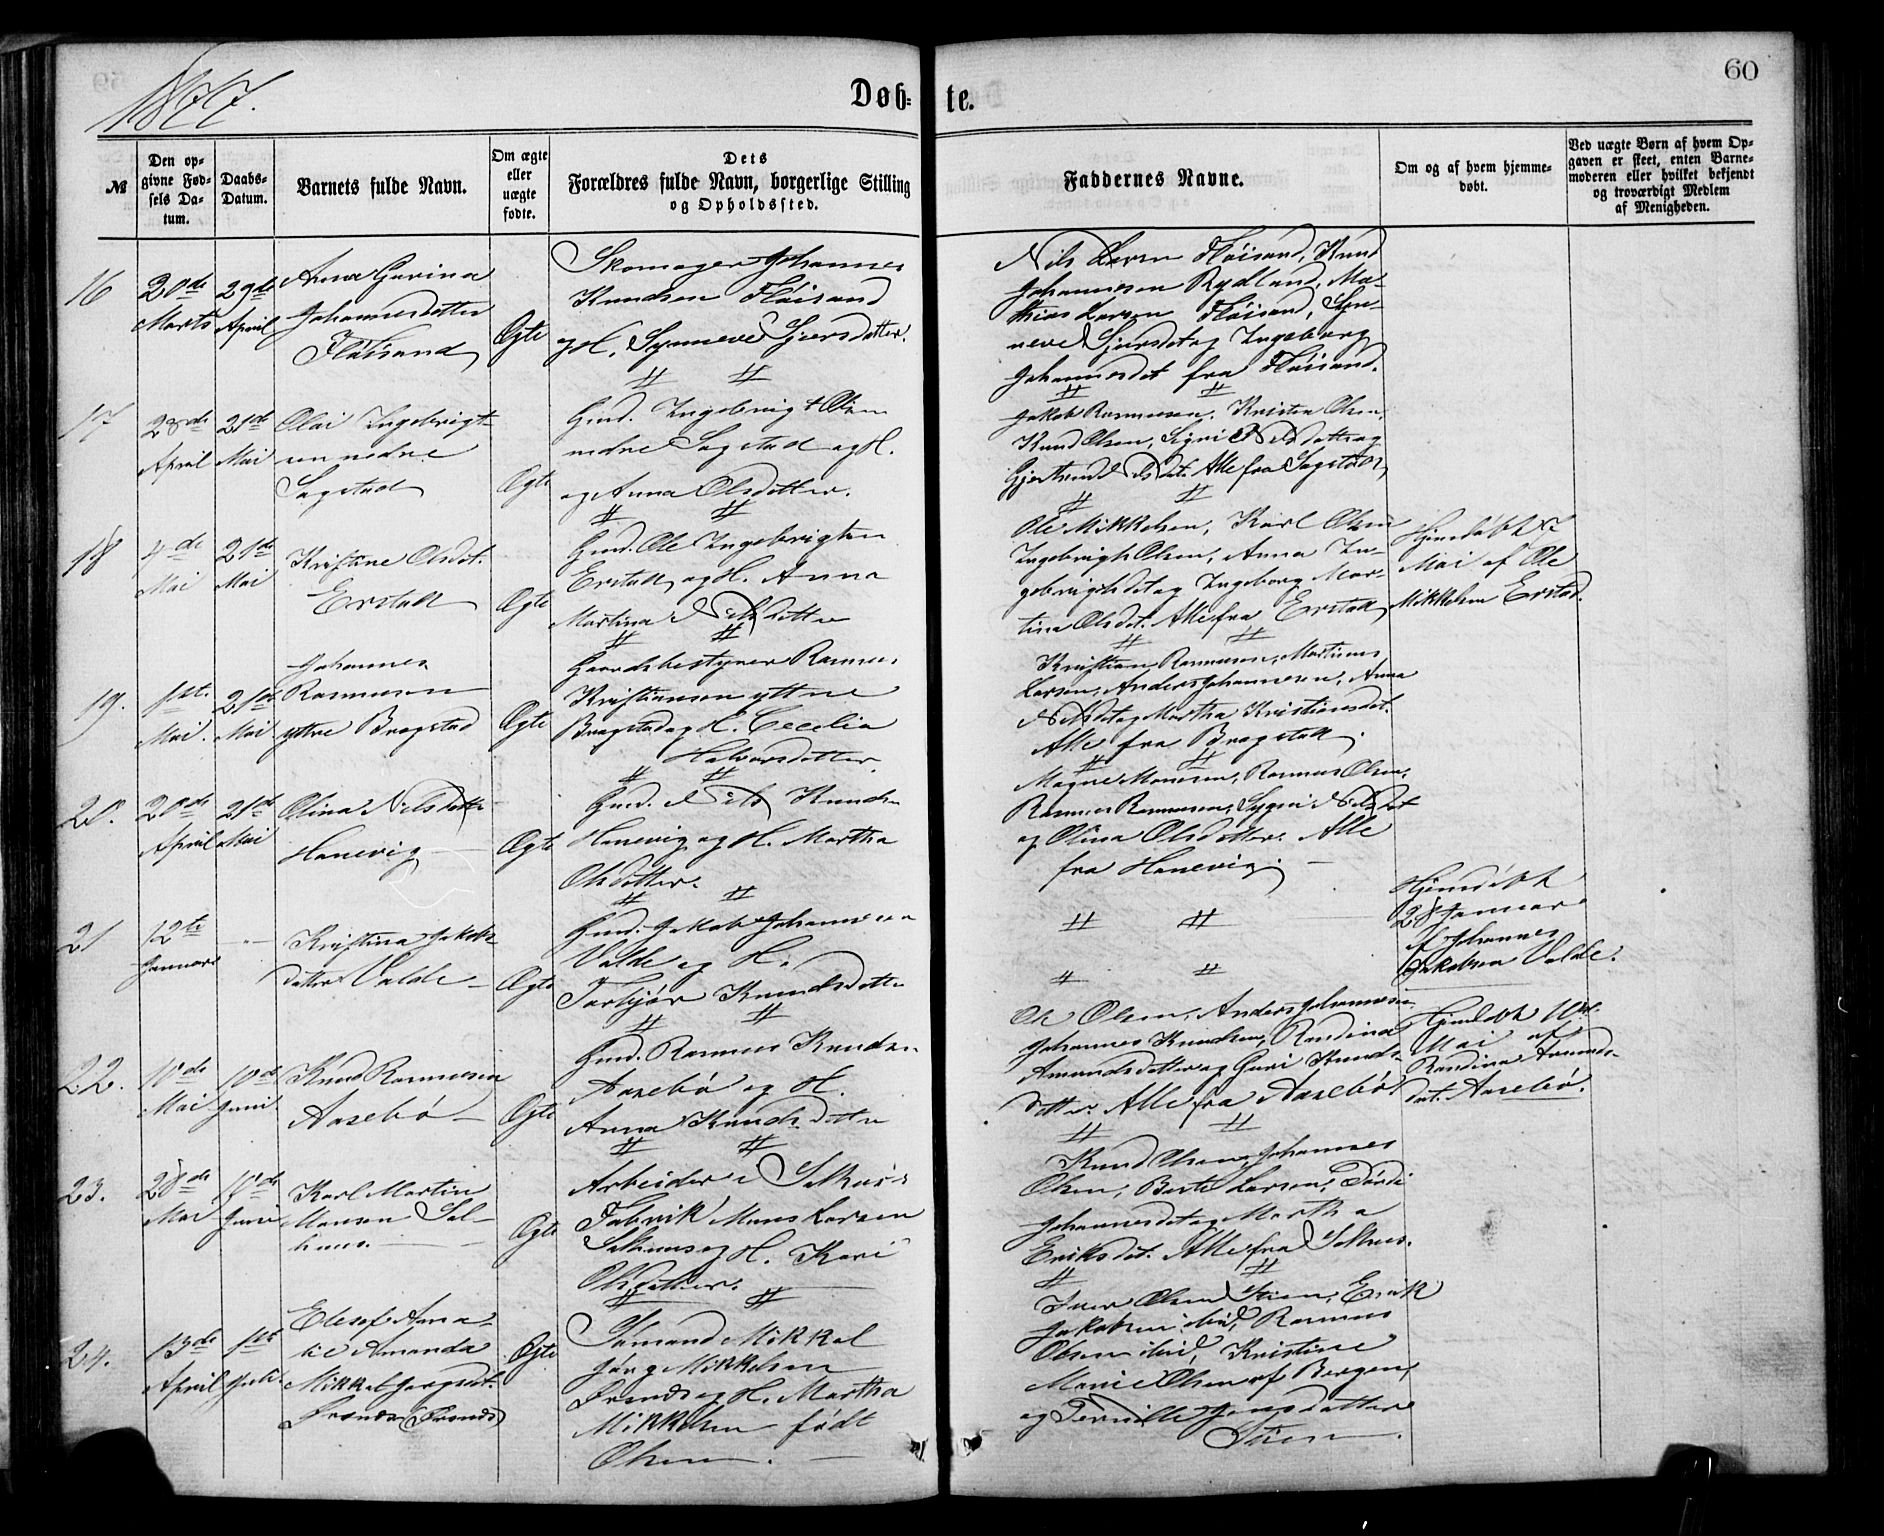 1877.
Døb-
te.
60
№
Den op-
givne Fød-
sels Da-
tum.
Daabs-
Datum.
Barnets fulde Navn.
Om ægte
eller
uægte
fødte.
Dets
Forældres fulde Navn, borgerlige Stilling
og Opholdssted.
Faddernes Navne.
Om og af hvem hjemme-
døbt.
Ved uægte Børn af hvem Op-
gaven er skeet, enten Barne-
moderen eller hvilket bekjendt
og troværdigt Medlem
af Menigheden.
16
20de
Marts
29de
April
Anna Gurina
Johannesdatter
Fløisand
Ægte
Skomager Johannes
Knudsen Fløisand
og H. Synneve Sjursdatter.
Nils Larsen Fløisand, Knud
Johannesen Rydland, Ma-
thias Larsen Fløisand, Syn-
neve Sjursdat og Ingeborg
Johannesdat fra Fløisand.
17
23de
April
21de
Mai
Olai Ingebrigt-
sen nedre
Sagstad
Ægte
Gmd. Ingebrigt Olsen
nedre Sagstad og H.
og Anna Olsdatter.
Jakob Rasmussen, Kristen Olsen,
Knud Olsen, Signi Nilsdatter og
Gjertrud Nilsdat. Alle fra Sagstad
18
4de
Mai
21de
Mai
Kristine Olsdt.
Erstad
Ægte
Gmd. Ole Ingebrigtsen
Erstad og H. Anna
Martina Nilsdatter
Ole Mikkelsen, Karl Olsen
Ingebrigt Olsen, Anna In-
gebrigtsdat og Ingeborg Mar-
tina Olsdt. Alle fra Erstad
Hjemdøbt 7
Mai af Ole
Mikkelsen Erstad.
19.
1st.
Mai.
21de
Mai
Johannes
Rasmussen
yttre Bragstad
Ægte
Gaardsbestyrer Rasmus
Kristiansen yttre
Bragstad og H. Cecilia
Halvorsdatter.
Kristian Rasmussen, Martinus
Larsen, Anders Johannesen, Anna
Nilsdat og Martha Kristiansdat.
Alle fra Bragstad.
20.
20de
April
21de
Mai
Olina Nilsdatter
Hanevig
Ægte
Gmd. Nils Knudsen
Hanevig og H. Martha
Olsdatter.
Magne Monsen, Rasmus Olsen,
Rasmus Rasmussen, Sygni Nilsdat
og Olina Olsdatter. Alle
fra Hanevig.
21
12te
Januar
Kristina Jakobs-
datter Valde
Ægte
Gmd. Jakob Johannesen
Valde og H.
Torbjør Knudsdatter
Hjemdøbt
28 Januar
af Johannes
Jakobsen Valde.
22.
10de
Mai
10de
Juni
Knud Rasmussen
Aasebø
Ægte
Gmd. Rasmus Knudsen
Aasebø og H.
Anna Knudsdatter
Ole Olsen, Anders Johannesen
Johannes Knudsen, Randina
Amundsdatter og Guri Knuds-
datter Alle fra Aasebø
Hjemdøbt 10de.
Mai af
Randina Amunds-
dat. Aasebø.
23.
28de
Mai
17de
Juni
Karl Martin
Monsen Sal-
huus.
Ægte
Arbeider i Salhuus
Fabrik Mons Larsen
Salhuus og H. Kari
Olsdatter.
Knud Olsen, Johannes
Olsen, Berte Larsen, Dordi
Johannesdat og Martha
Eriksdat. Alle fra Salhus.
24.
13de
April
1st
Juli.
Elesef Ama-
lie Amanda
Mikkel Jørgsdt.
Ægte
Sømand Mikkel
Jørg Mikkelsen
og H. Martha
Mikkelsen født
Olsen.
Iver Olsen Steen, Erik
Jakobsen ibid, Rasmus
Olsen ibid, Kristine
Marie Olsen af Bergen,
og Pernille Jensdatter
Steen.